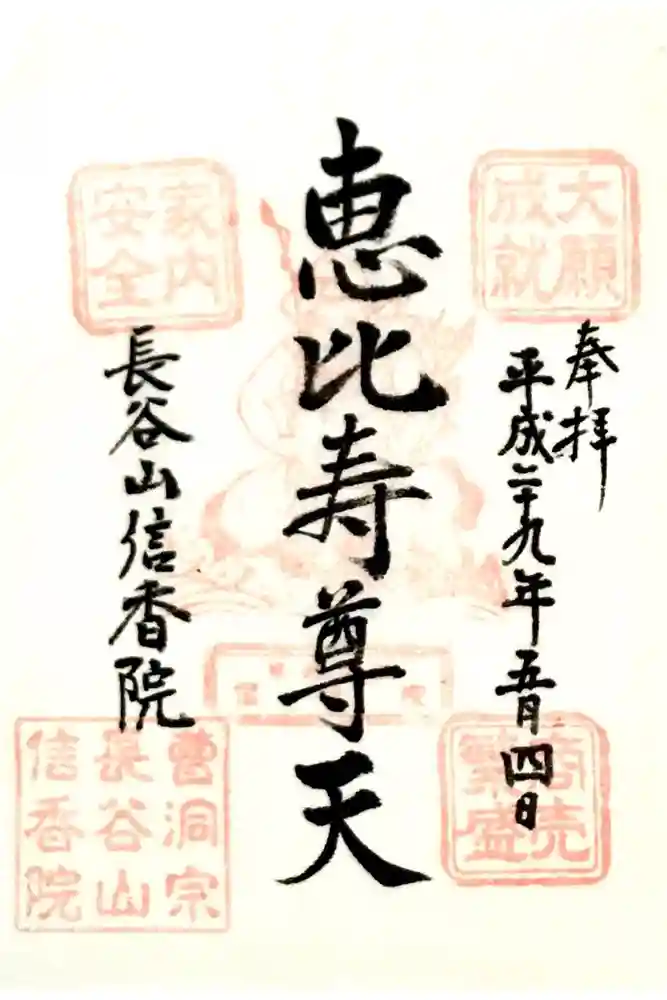 大願
成就
奉拝
平成二十九年五月四日
商売
繁盛
恵比寿尊天
家内
安全
長谷山信香院
曹洞宗
長谷山
信香院